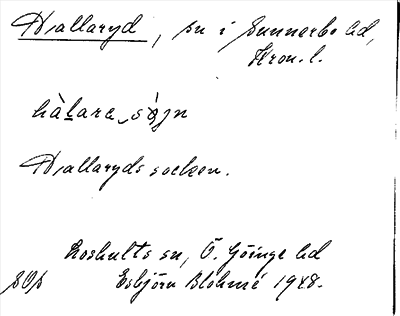 Hallaryd, sn i Sunnerbo hd,
Kron. l.
hàlara sǫ̀jn
Hallaryds socken.
Loshults sn, Ö. Göinge hd
Esbjörn Blohmé 1948.